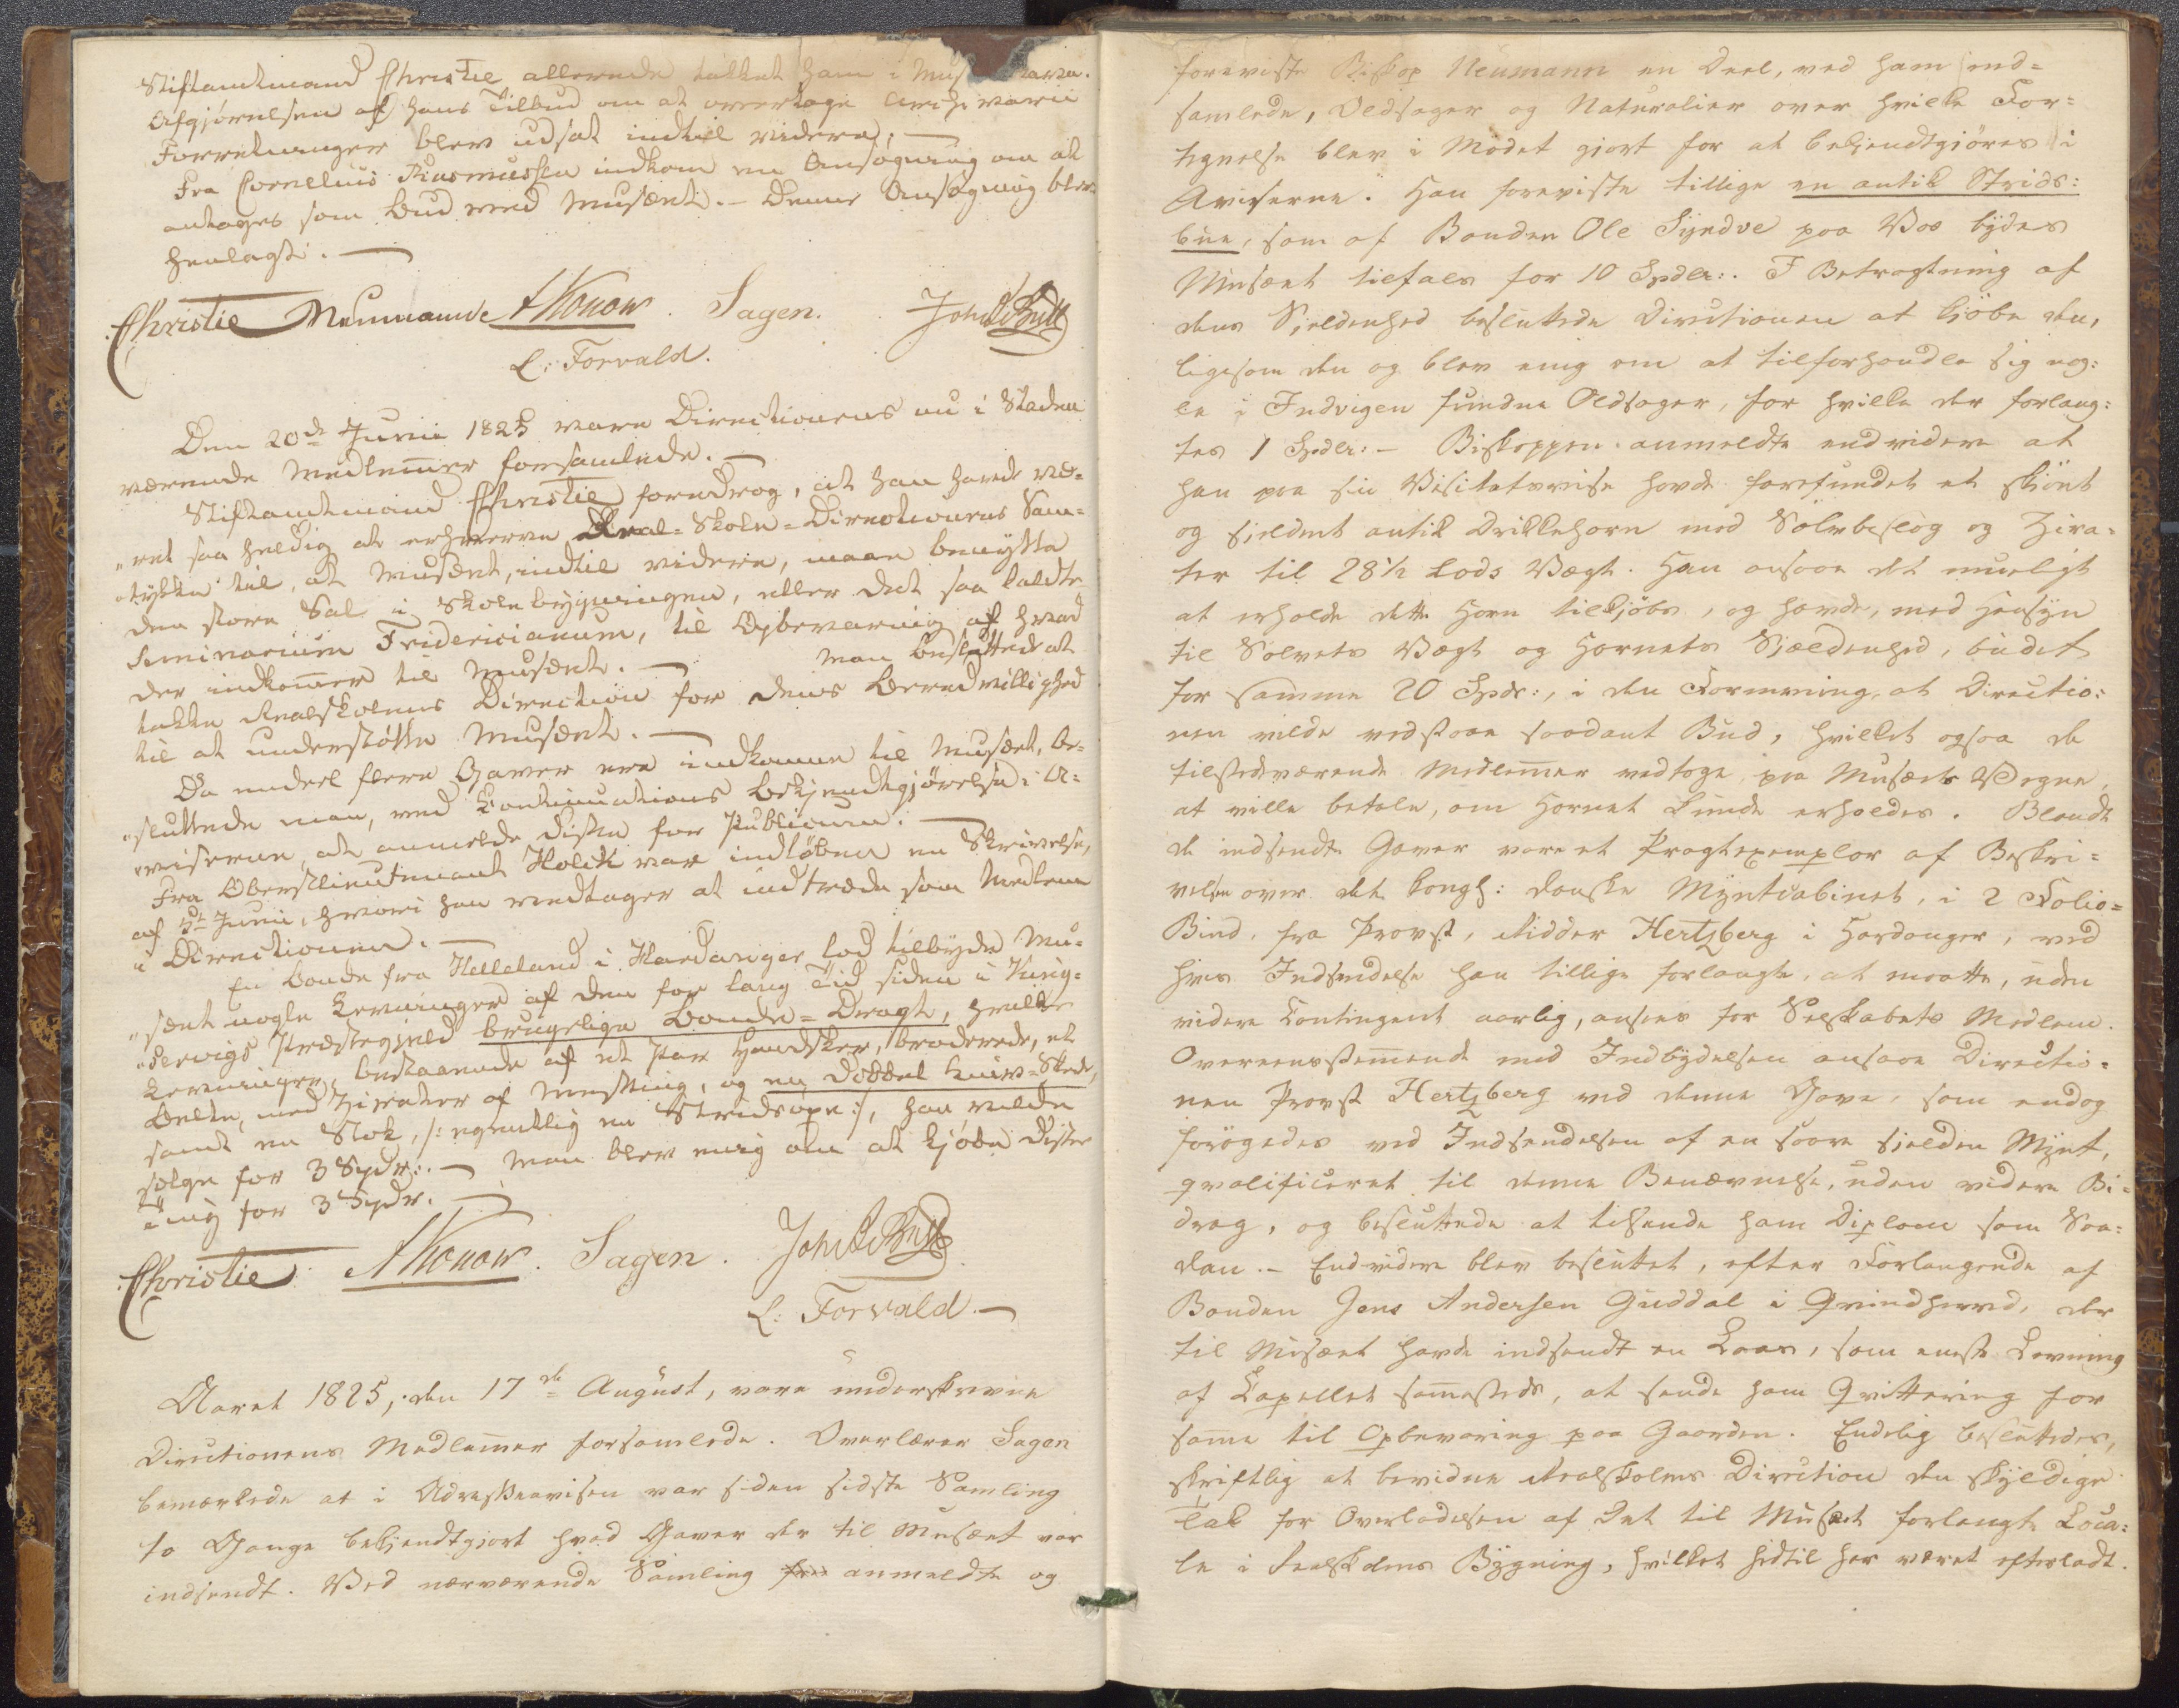 Stiftamtmand Christie allerede takket ham i Mus Navn.
Afgjørelsen af hans Tilbud om at overtage Archivarii
Forretninger blev udsat indtil videre. —
Fra Cornelius Rasmussen indkom en Ansøgning om at
antages som Bud ved Musæet. — Denne Ansøgning blev
henlagt. —
Christie Neumann A Konow. Sagen. John Bull
C: Forvald.
Den 20de Junii 1825 vare Directionens nu i Staden
værende Medlem̄er forsamlede. —
Stiftamtmand Christie foredrog, at han havde væ=
„ret saa heldig at erhverve Real=Skole=Directionens Sam=
„tykke til, at Musæet, indtil videre, maae benytte
den store Sal i Skolebygningen, eller det saa kaldte
Seminarium Fridericianum, til Opbevaring af hvad
der indkom̄er til Musæet. — Man besluttede at
takke Realskolens Direction for dens Beredvillighed
til at understøtte Musæet. —
Da endeel flere Gaver ere indkomne til Musæet, be=
„sluttede man, ved Continuations Bekjendtgjørelse i A=
„viserne, at anmelde disse for Publicum. —
Fra Oberstlieutenant Holck var indløben en Skrivelse,
af 5te Junii, hvori han modtager at indtræde som Medlem
i Directionen. —
En Bonde fra Helleland i Hardanger lod tilbyde Mu=
„sæet nogle Levninger af den for lang Tid siden i King=
„servigs Præstegjeld brugelige Bonde=Dragt, hvilke
Levninger, bestaaende af et Par Handsker, broderede, et
Belte, med Zirater af Messing, og en dobbel Kniv=Skede,
samt en Stok, /: egentlig en Stridsøxe :/, han vilde
sælge for 3 Spdr: — Man blev enig om at kjøbe disse
Ting for 3 Spdr. —
Christie A Konow. Sagen. John Bull
C: Forvald. —
Aaret 1825, den 17de August, vare underskrevne
Directionens Medlem̄er forsamlede. Overlærer Sagen
bemærkede at i Adresseavisen var siden sidste Samling
to Gange bekjendtgjort hvad Gaver der til Musæet var
indsendt. Ved nærværende Samling anmeldte og
foreviste Biskop Neumann en Deel, ved ham ind=
samlede, Oldsager og Naturalier over hvilke For=
tegnelse blev i Mødet gjort for at bekjendtgjøres i
Aviserne. Han foreviste tillige en antik Strids:
bue, som af Bonden Ole Syndve paa Vos bydes
Musæet tilfals for 10 Spdlr:. I Betragtning af
dens Sjeldenhed besluttede Directionen at kjöbe den,
ligesom den og blev enig om at tilforhandle sig nog:
le i Indvigen fundne Oldsager, for hvilke der forlang:
tes 1 Spdlr: — Biskoppen anmeldte endvidere at
han paa sin Visitatsreise havde forefundet et skjönt
og sieldent antik Drikkehorn med Sölvbeslag og Zira=
ter til 28½ Lods Vægt. Han ansaae det mueligt
at erholde dette Horn tilkjöbs, og havde, med Hensyn
til Sölvets Vægt og Hornets Sjældenhed, budet
for samme 20 Spdr:, i den Formening, at Directio:
nen vilde vedstaae saadant Bud, hvilket ogsaa de
tilstedeværende Medlem̄er vedtoge paa Musæets Vegne,
at ville betale, om Hornet kunde erholdes. Blandt
de indsendte Gaver vare et Pragtexemplar af Beskri=
velsen over det kongl: danske Myntcabinet, i 2 Folio=
Bind, fra Provst, Ridder Hertzberg i Hardanger, ved
hvis Indsendelse han tillige forlangte, at maatte, uden
videre Contingent aarlig, ansees for Selskabets Medlem.
Overeensstem̄ende med Indbydelsen ansaae Directio=
nen Provst Hertzberg ved denne Gave, som endog
forögedes ved Indsendelsen af en saare sjelden Mynt,
qvalificeret til denne Benævnelse, uden videre Bi=
drag, og besluttede at tilsende ham Diplom som Saa=
dan. — Endvidere blev besluttet, efter Forlangende af
Bonden Jens Andersen Guddal i Qvindherred, der
til Musæet havde indsendt en Laas, som eneste Levning
af Capellet sam̄esteds, at sende ham Qvittering for
sam̄e til Opbevaring paa Gaarden. Endelig besluttedes,
skriftlig at bevidne Realskolens Direction den skyldige
Tak for Overladelsen af det til Musæet forlangte Loca=
le i Realskolens Bygning, hvilket hidtil har været efterladt.